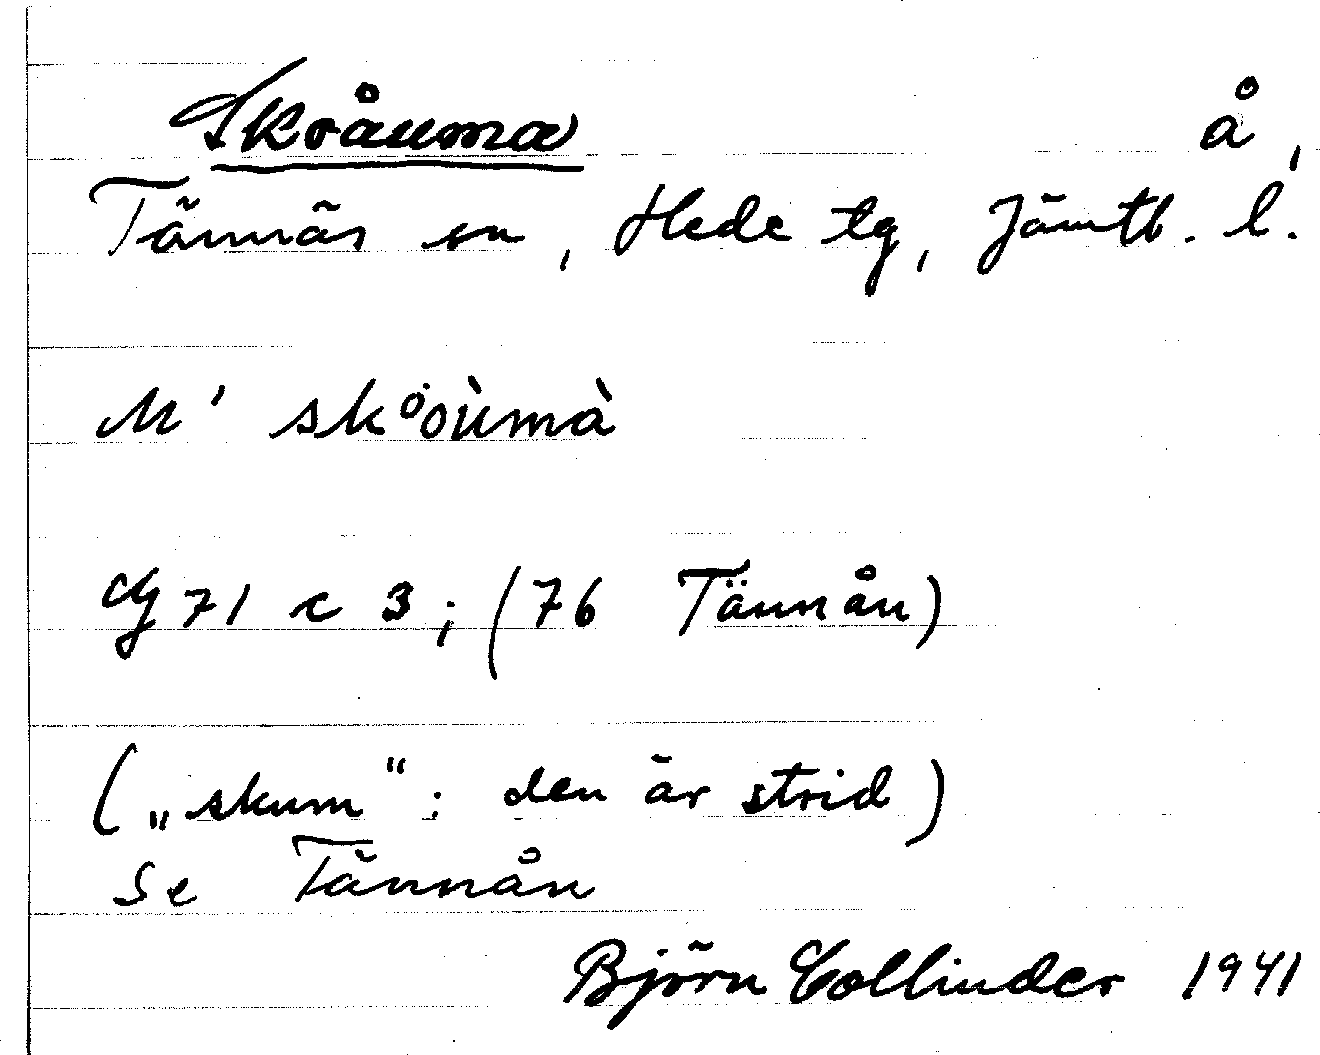 Skråuma å,
Tännäs sn, Hede tg, Jämtl. l.
sk°oùmà
71 c 3; (76 Tännån)
(„skum“; den är strid)
Se Tännån
Björn Collinder 1941